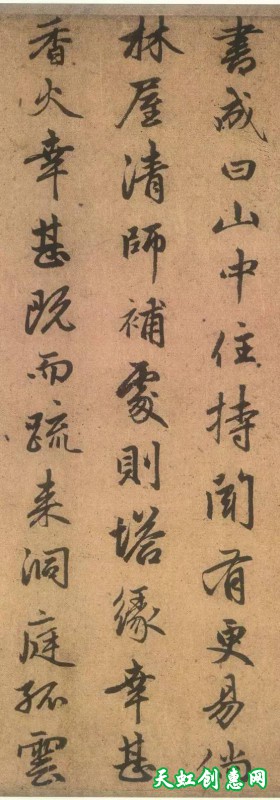 書成曰山中住持聞有更易倘
林屋清師補處則塔緣幸甚
香火幸甚既而疏来洞庭孤雲
天虹创意网
www.rainbowcn.com